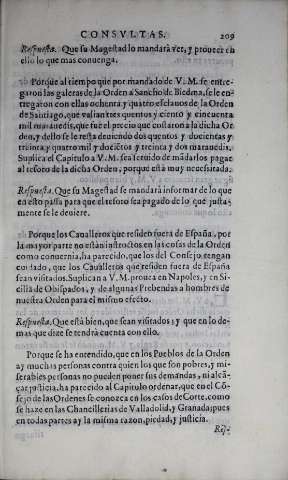 CONSVLTAS. 209
Respuesta. Que su Magestad lo mandarà ver, y proueer en
ello lo que mas conuenga.
Porque al tiempo que por mandado de V. M. se entre-
garon las galeras de la Orden a Sancho de Biedma, se le en-
tregaron con ellas ochenta y quatro esclauos de la Orden
de Santiago, que valian tres quentos y ciento y cincuenta
mil marauedis, que fue el precio que costaron a la dicha Or
den, y dello se le resta deuiendo dos quentos y duzientas y
treinta y quatro mil y dozientos y treinta y dos marauedis.
Suplica el Capitulo a V. M. sea seruido de mãdarlos pagar
al tesoro de la dicha Orden, porque està muy necessitada.
Respuesta. Que su Magestad se mandarà informar de lo que
en esto passa para que el tesoro sea pagado de lo que justa-
mente se le deuiere.
Porque los Caualleros que residen fuera de España, por
la mayor parte no estàn instructos en las cosas de la Orden
como conuernia, ha parecido, que los del Consejo tengan
cuidado, que los Caualleros que residen fuera de España
sean visitados. Suplican a V. M. prouea en Napoles, y en Si-
cilia de Obispados, y de algunas Prebendas a hombres de
nuestra Orden para el mismo efecto.
Respuesta. Que està bien, que sean visitados: y que en lo de-
mas que dize se tendrà cuenta con ello.
Porque se ha entendido, que en los Pueblos de la Orden
ay muchas personas contra quien los que son pobres, y mi-
serables personas no pueden poner sus demandas, ni alcã-
çar justicia, ha parecido al Capitulo ordenar, que en el Cõ-
sejo de las Ordenes se conozca en los casos de Corte, como
se haze en las Chancillerias de Valladolid, y Granada; pues
en todas partes ay la misma razon, piedad, y justicia.
Res-